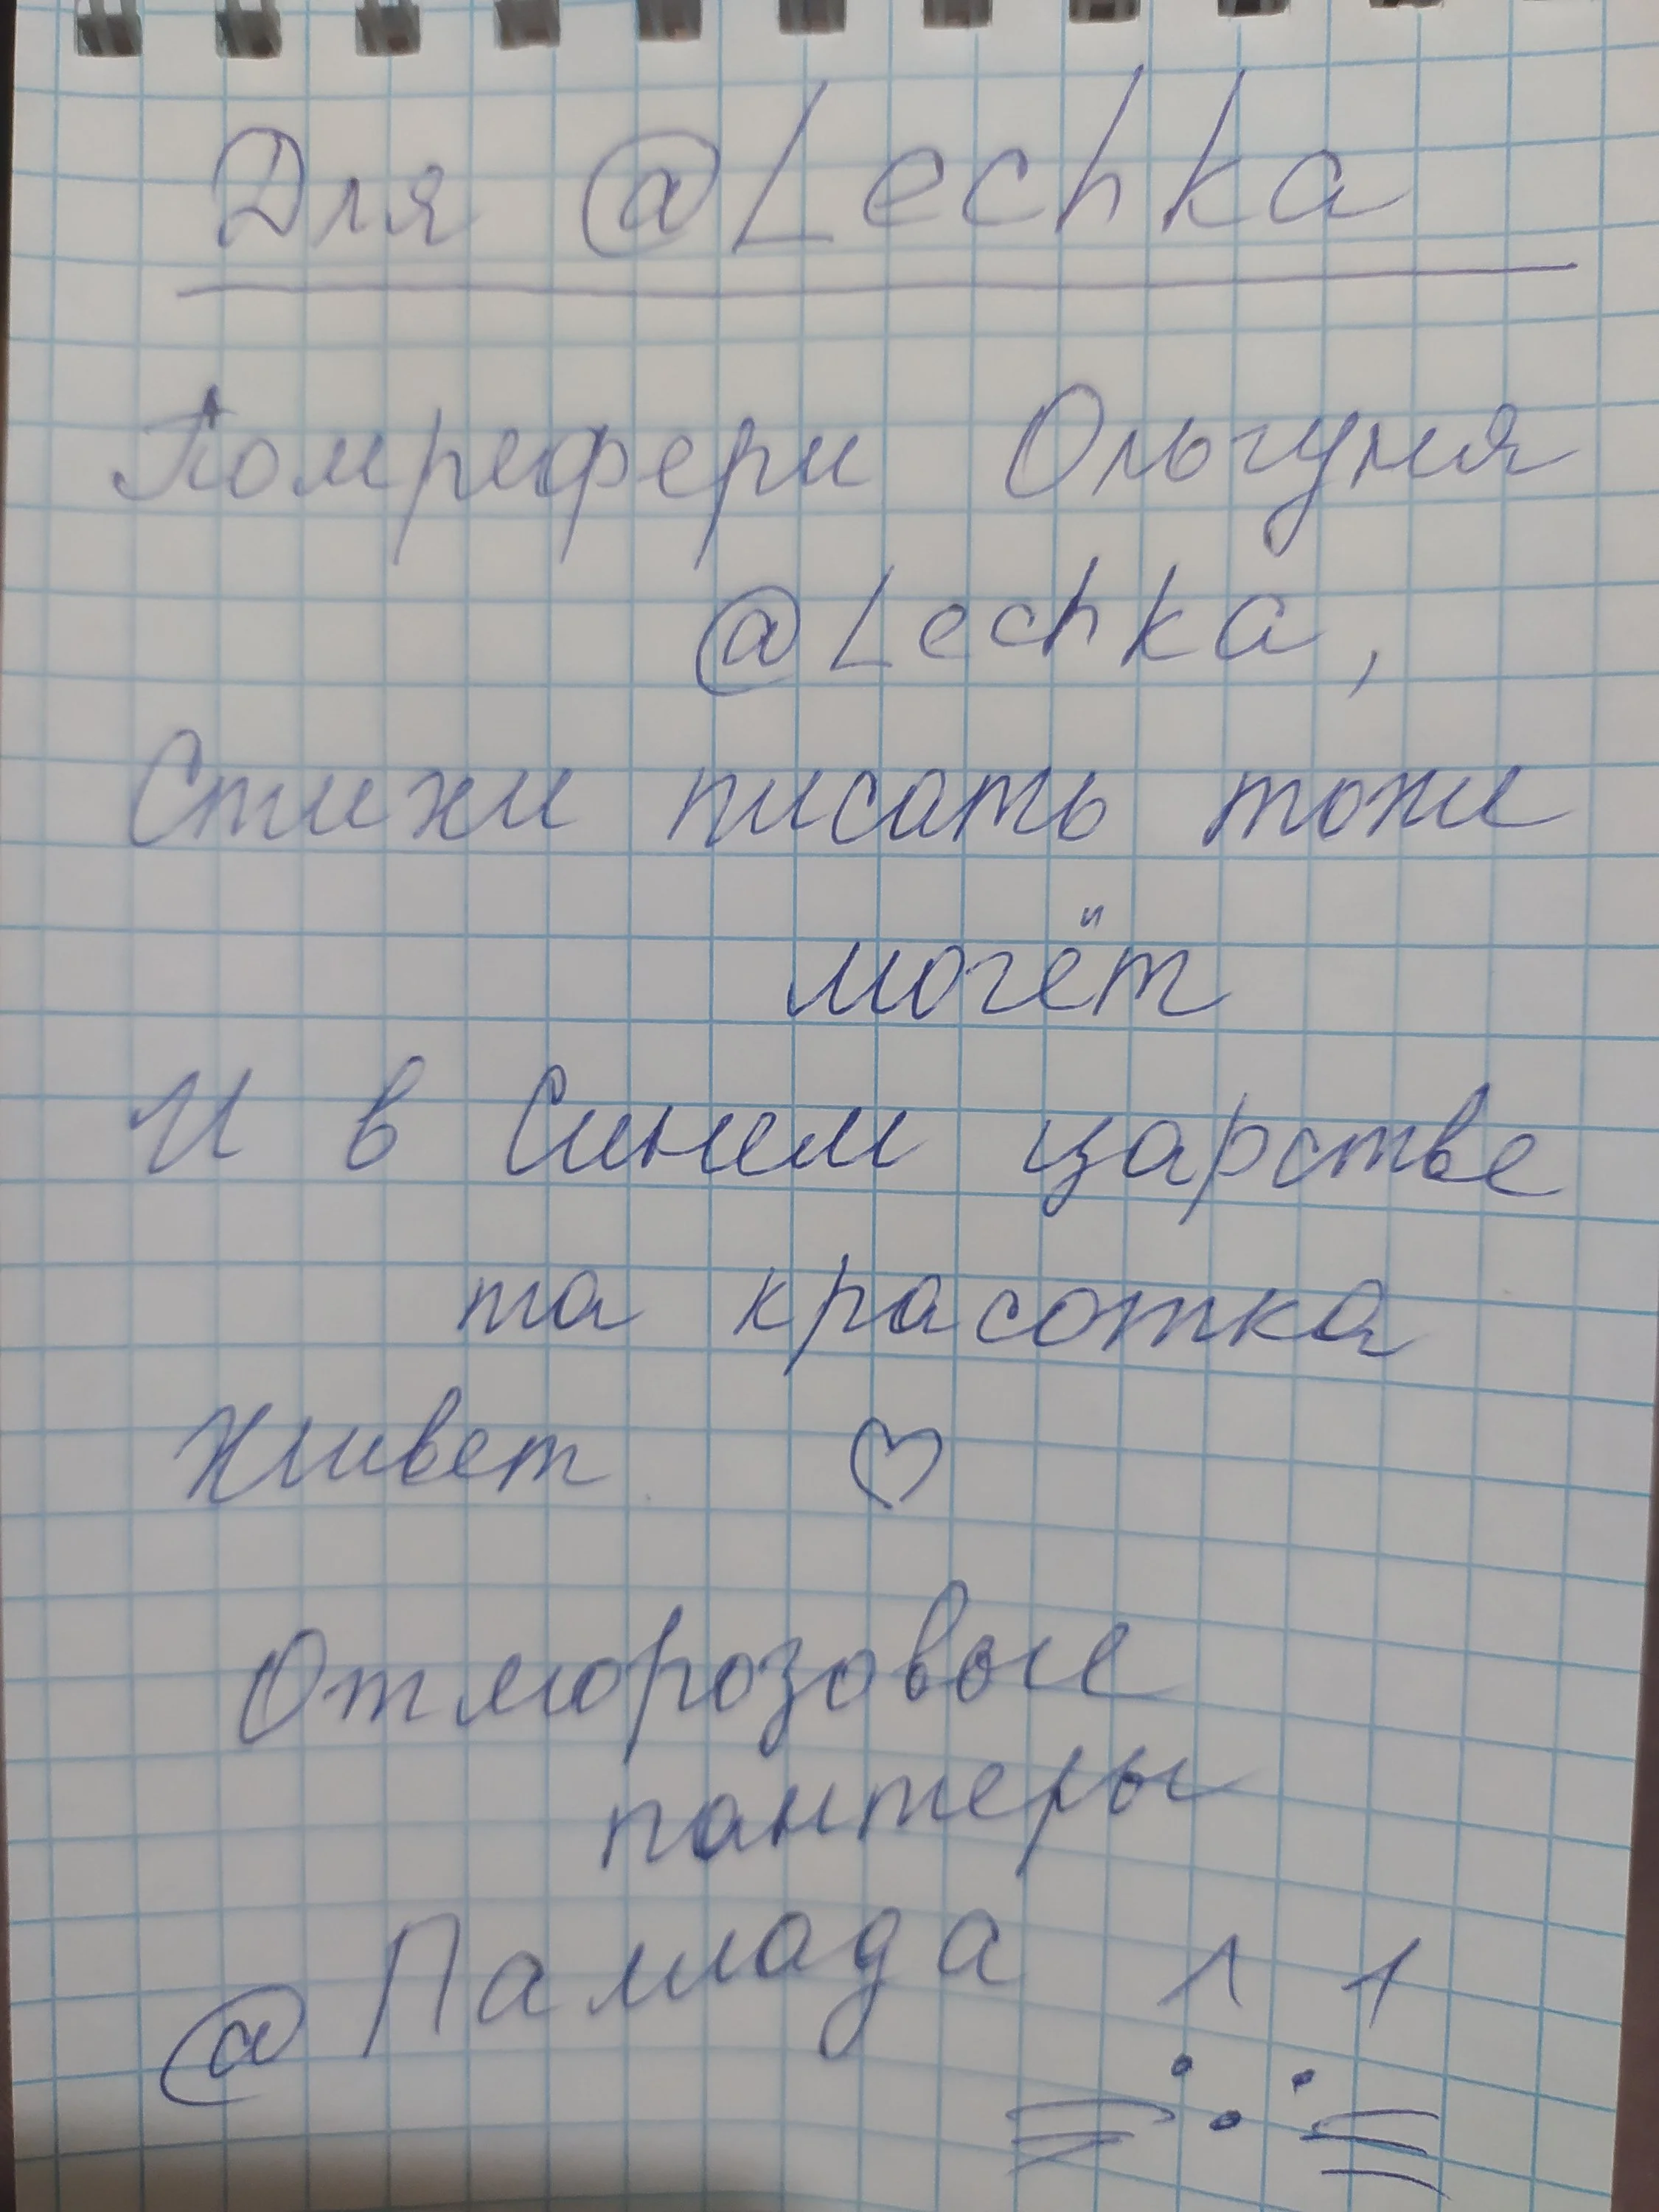 Для @Lechka
Помрефери Ольгуня
@Lechka,
Стихи писать тоже
могёт
И в Синем царстве
та красотка
Живет ♡
Отморозовые
пантеры
@Паллада